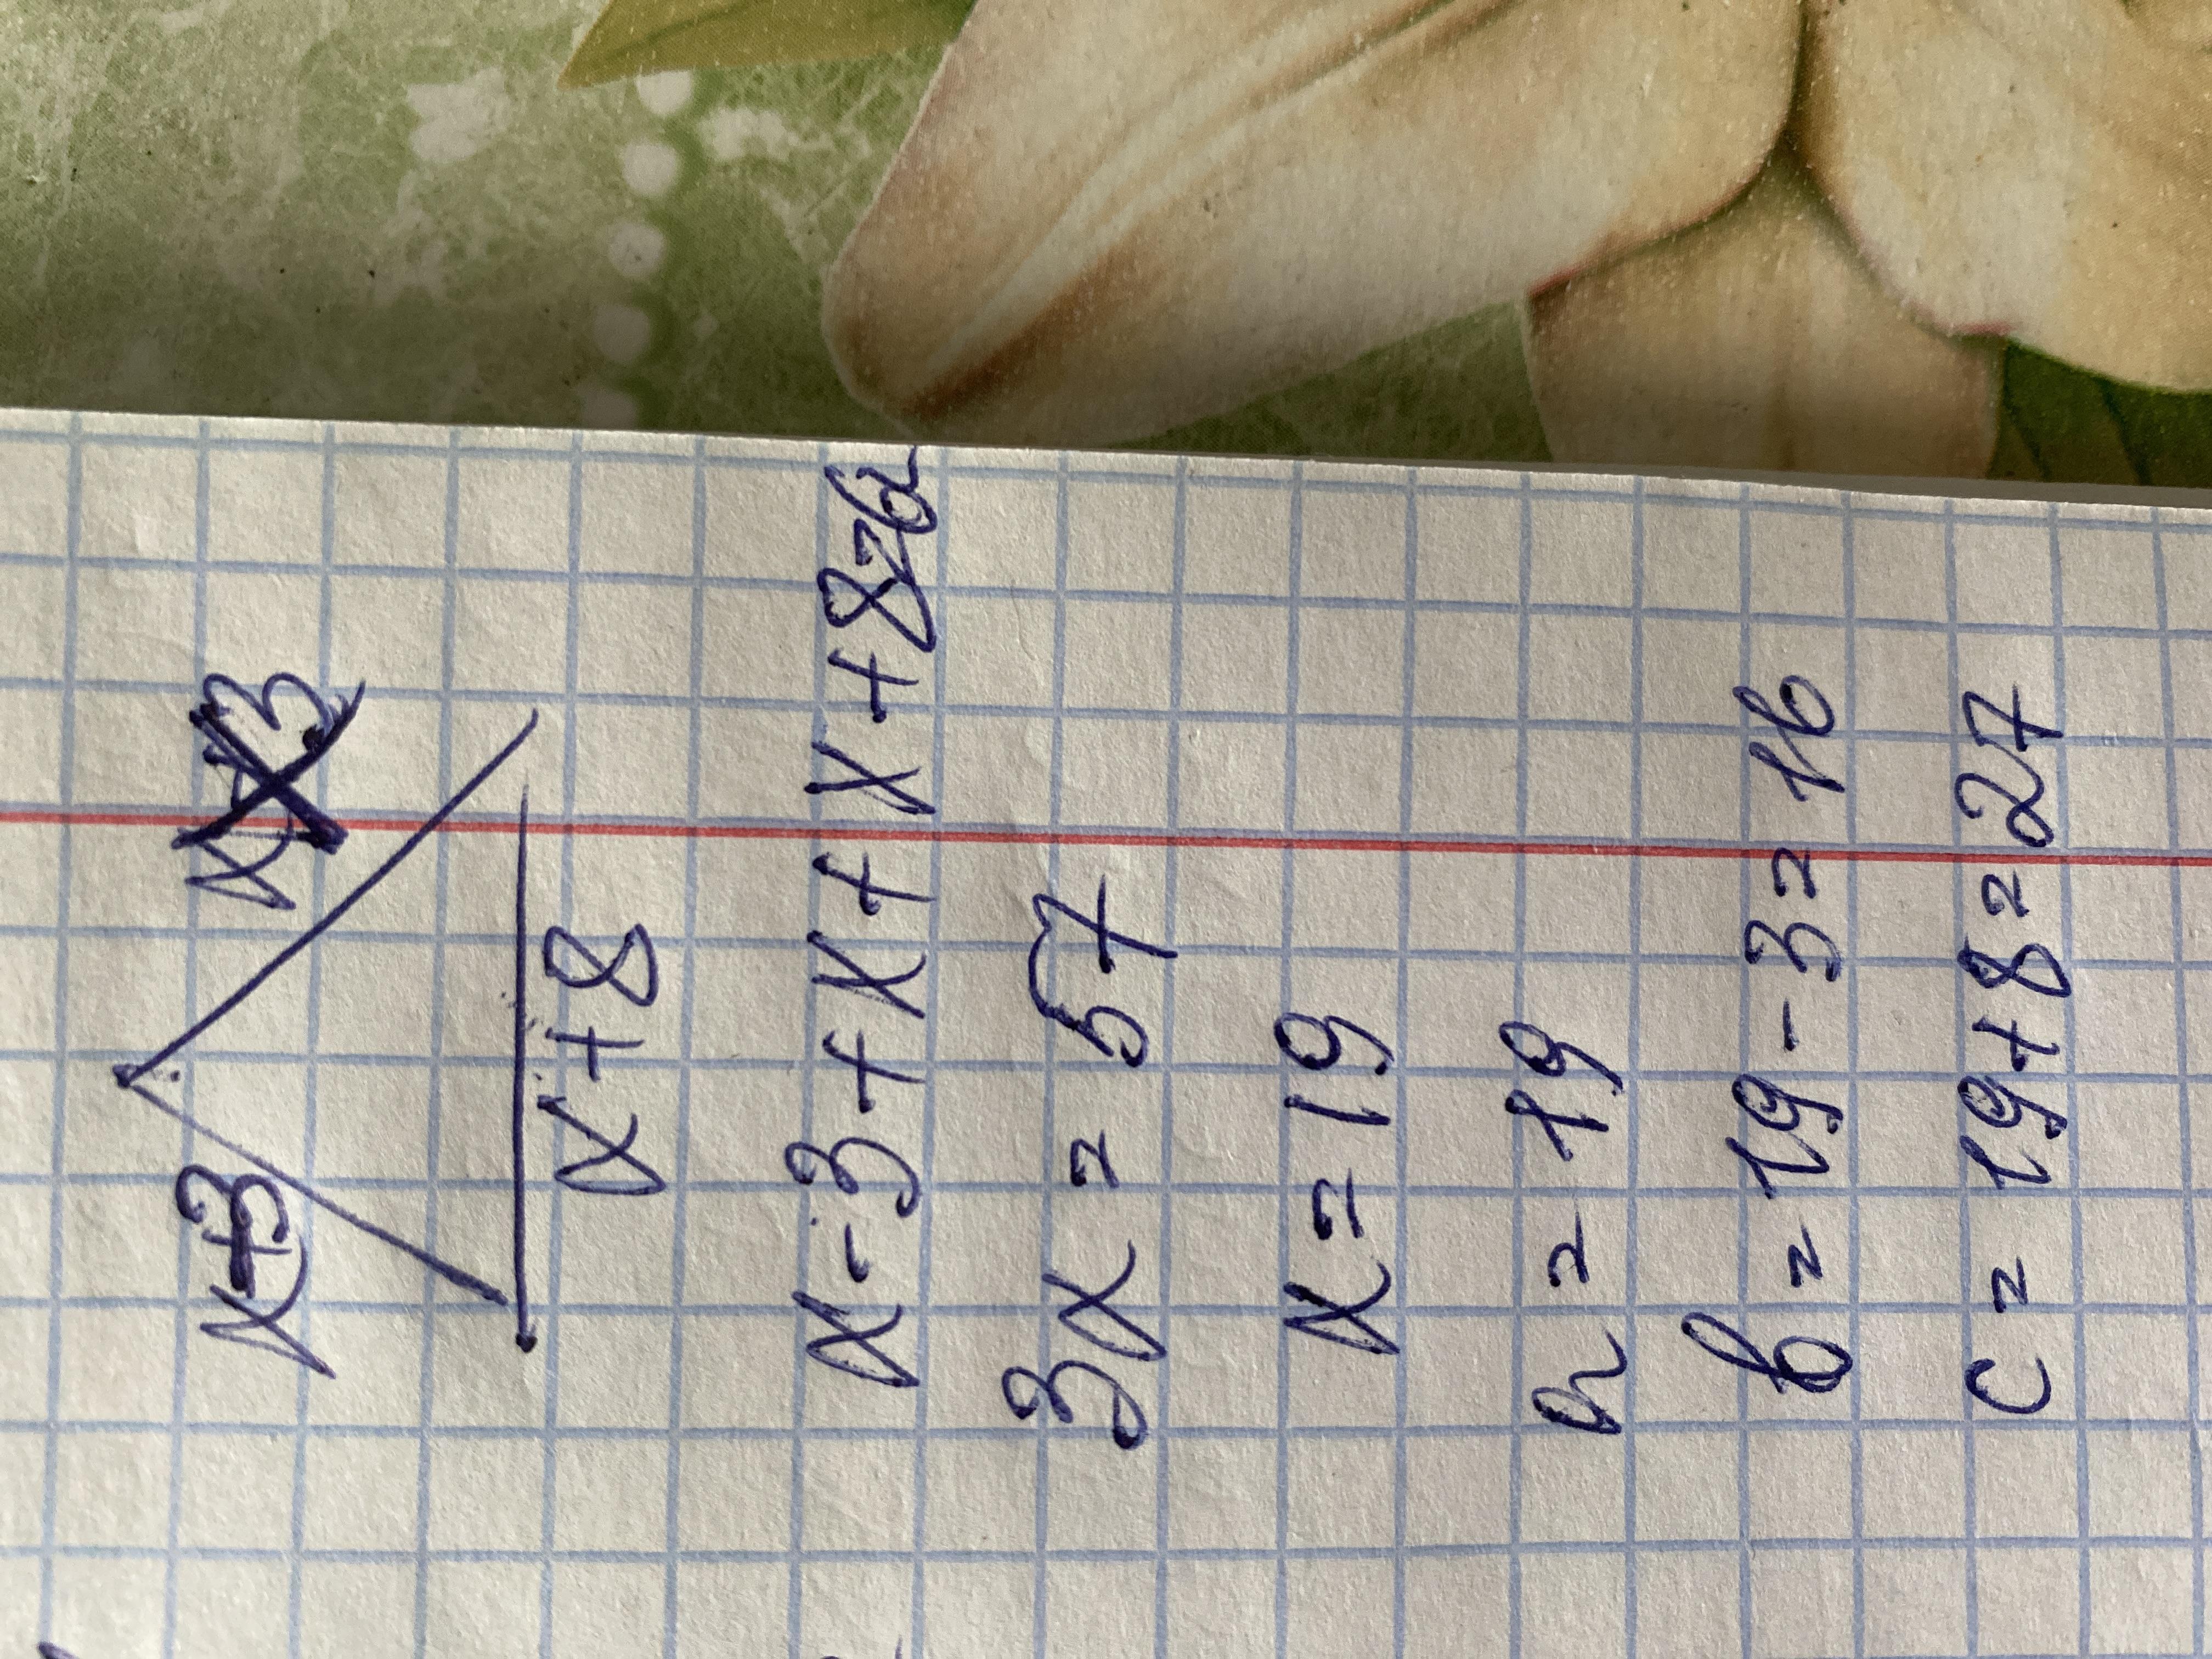 x-3
x+8
x-3+x+x+8=62
3x=57
x=19
a=19
b=19-3=16
c=19+8=27